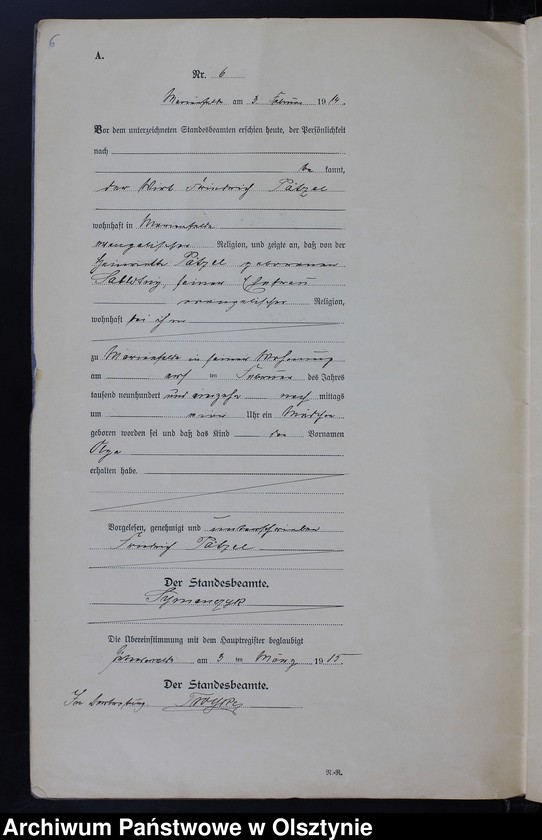 6
A.
Nr. 6
Marienfelde am 3 Februar 1914.
Vor dem unterzeichneten Standesbeamten erschien heute, der Persönlichkeit
nach
be kannt,
der Wirt Friedrich Pätzel
wohnhaft in Marienfelde
evangelischer Religion, und zeigte an, daß von der
Henriette Pätzel geborenen
Sablotny, seiner Ehefrau
evangelischer Religion,
wohnhaft bei ihm
zu Marienfelde in seiner Wohnung
am Februar des Jahres
tausend neunhundert und vierzehn nach mittags
um Uhr ein Mädchen
geboren worden sei und daß das Kind den Vornamen
Olga
erhalten habe.
Vorgelesen, genehmigt und unterschrieben
Friedrich Pätzel
Der Standesbeamte.
Symanczyk
Die Übereinstimmung mit dem Hauptregister beglaubigt
am 3 ten März 1915
Der Standesbeamte.
In Vertretung
R.-R.
Archiwum Państwowe w Olsztynie